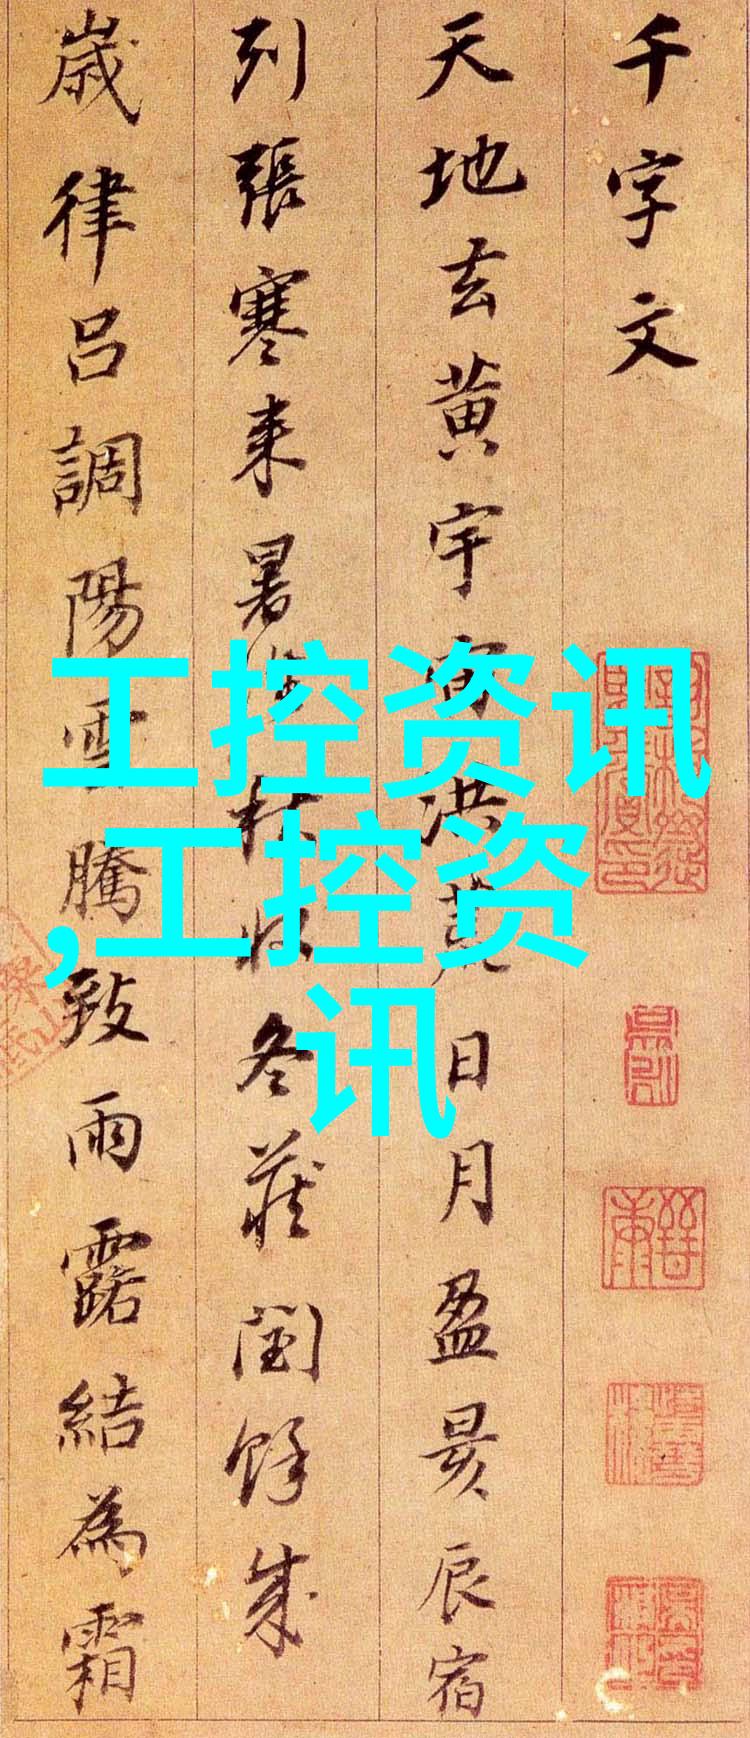 千字文
天地玄黄宇宙洪荒日月盈昃辰宿
列張寒来暑往秋收冬蔵閏餘成
歳律吕調陽雲騰致雨露結為霜
工控资讯
,工控资
讯